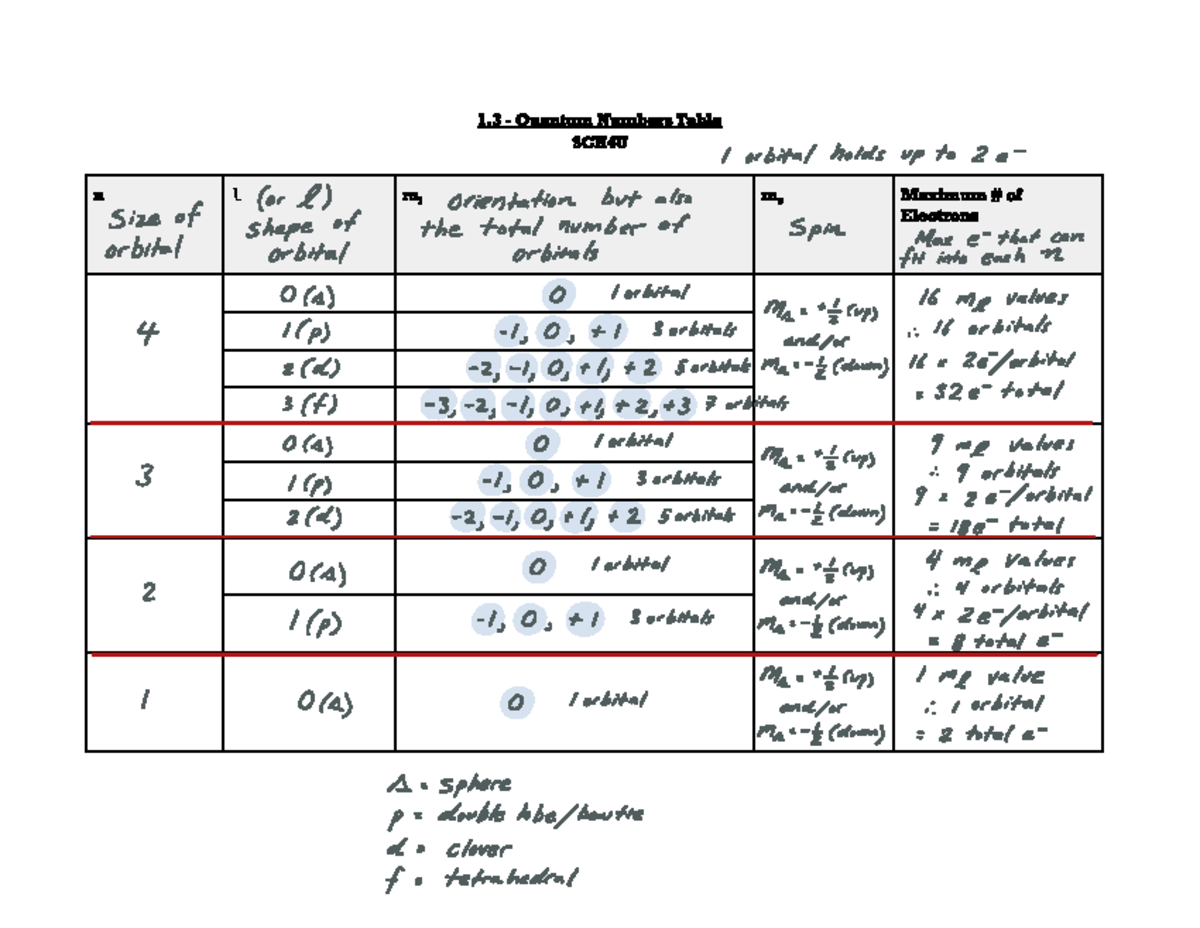 1.3 - Quantum Numbers Table
SCH4U
1 orbital holds up to 2 e⁻
n
Size of
orbital
l (or ℓ)
shape of
orbital
mₗ orientation but also
the total number of
orbitals
mₛ
Spin
Maximum # of
Electrons
Max e⁻ that can
fit into each n
4
0 (s)
0 1 orbital
1 (p)
-1, 0, +1 3 orbitals
2 (d)
-2, -1, 0, +1, +2 5 orbitals
3 (f)
-3, -2, -1, 0, +1, +2, +3 7 orbitals
mₛ = +1/2 (up)
and/or
mₛ = -1/2 (down)
16 mℓ values
∴ 16 orbitals
16 × 2e⁻/orbital
= 32 e⁻ total
3
0 (s)
0 1 orbital
1 (p)
-1, 0, +1 3 orbitals
2 (d)
-2, -1, 0, +1, +2 5 orbitals
mₛ = +1/2 (up)
and/or
mₛ = -1/2 (down)
9 mℓ values
∴ 9 orbitals
9 × 2 e⁻/orbital
= 18e⁻ total
2
0 (s)
0 1 orbital
1 (p)
-1, 0, +1 3 orbitals
mₛ = +1/2 (up)
and/or
mₛ = -1/2 (down)
4 mℓ values
∴ 4 orbitals
4 × 2e⁻/orbital
= 8 total e⁻
1
0 (s)
0 1 orbital
mₛ = +1/2 (up)
and/or
mₛ = -1/2 (down)
1 mℓ value
∴ 1 orbital
= 2 total e⁻
s = sphere
p = double lobe/bowtie
d = clover
f = tetrahedral